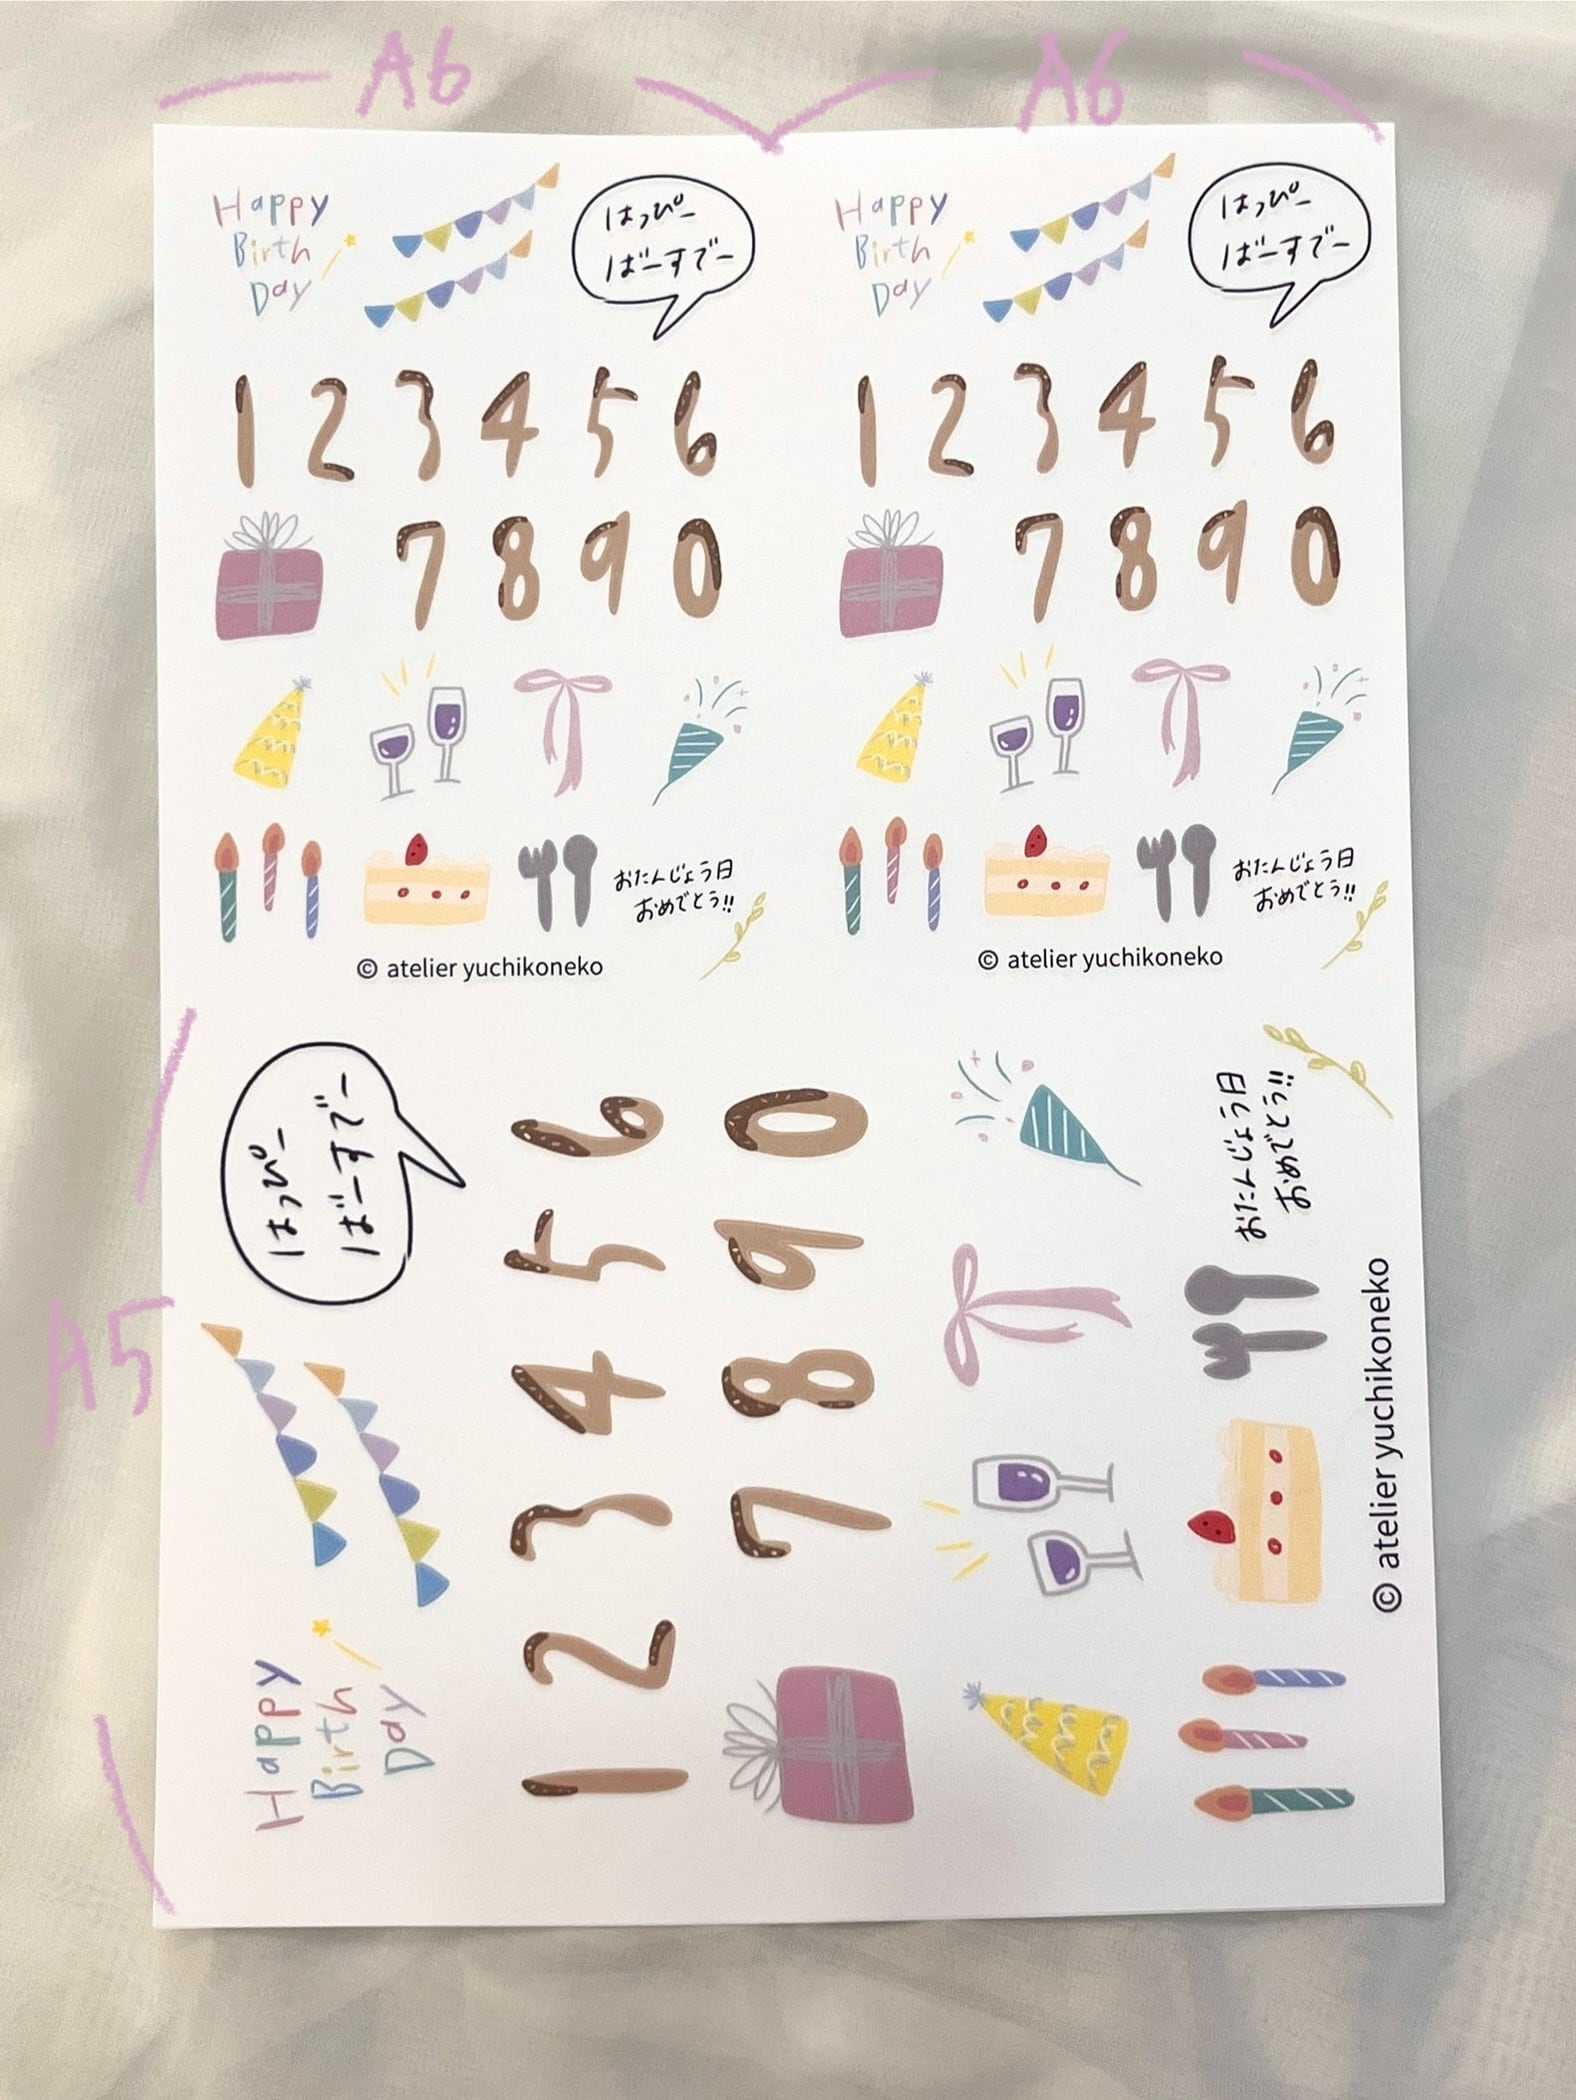 A6
A6
Happy
Birth
Day
はっぴー
ばーすでー
1 2 3 4 5 6
7 8 9 0
おたんじょう日
おめでとう!!
© atelier yuchikoneko
Happy
Birth
Day
はっぴー
ばーすでー
1 2 3 4 5 6
7 8 9 0
おたんじょう日
おめでとう!!
© atelier yuchikoneko
A5
Happy
Birth
Day
はっぴー
ばーすでー
1 2 3 4 5 6
7 8 9 0
おたんじょう日
おめでとう!!
© atelier yuchikoneko